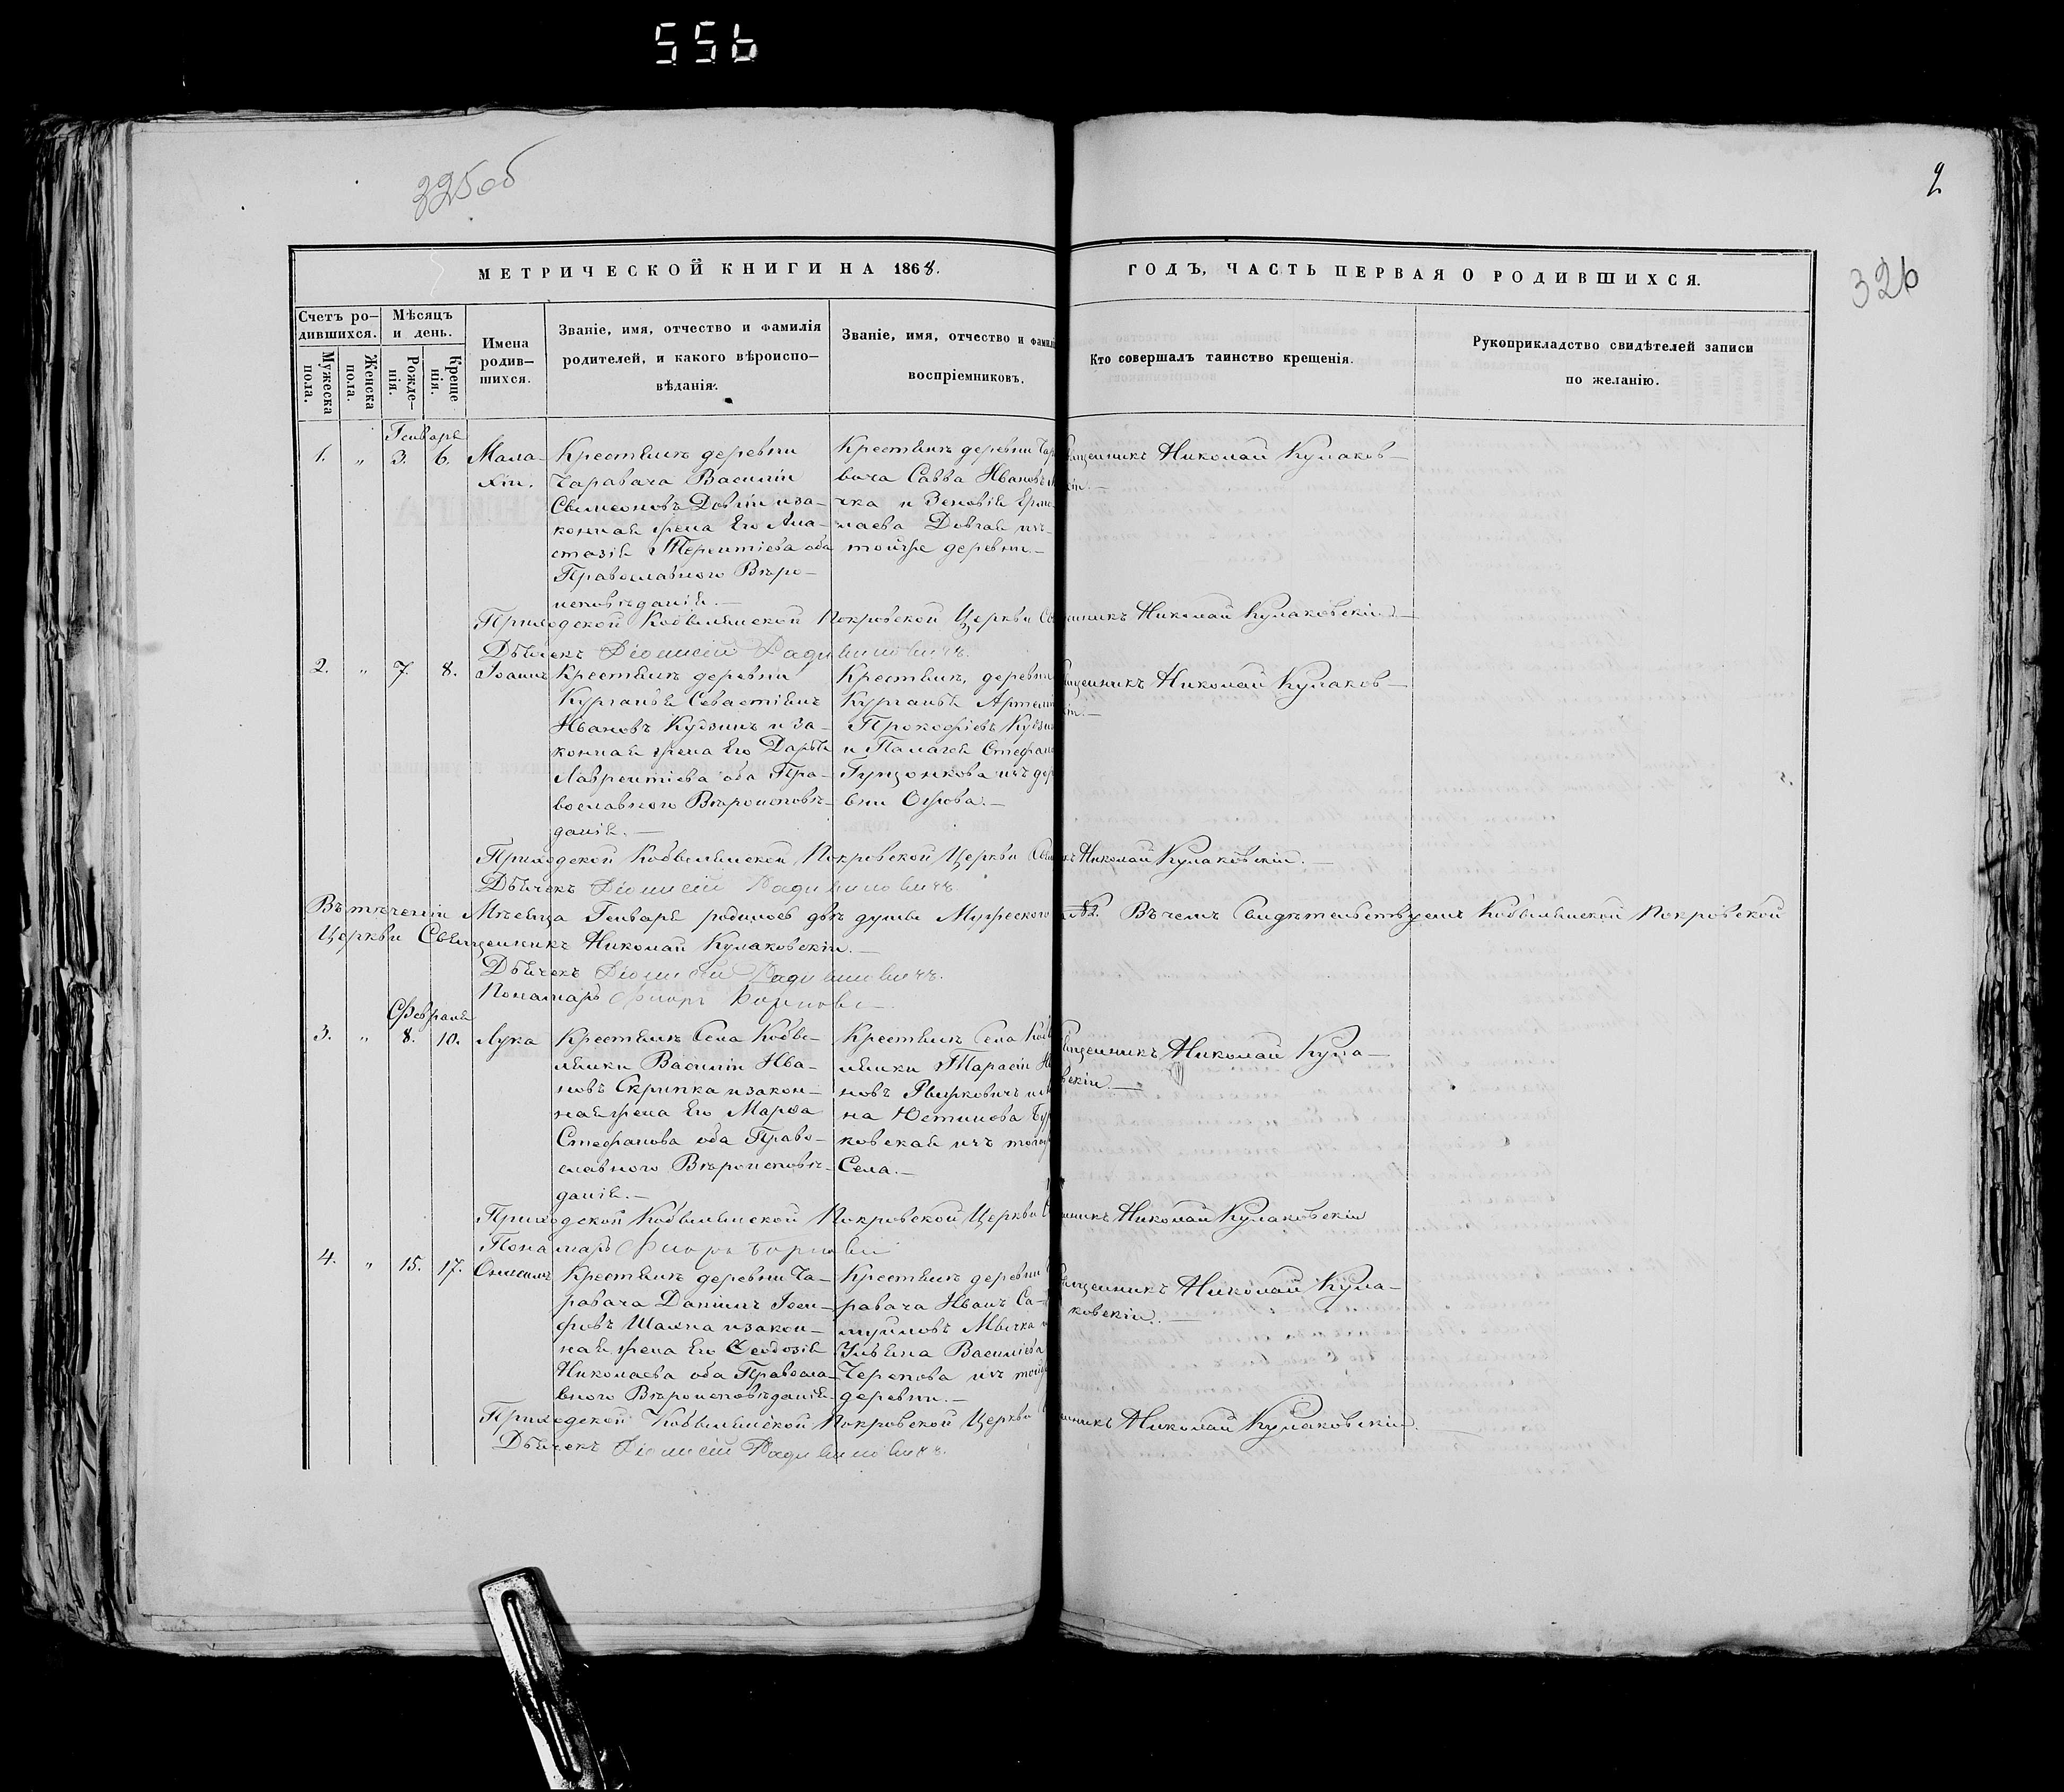 556
325об
2
326
МЕТРИЧЕСКОЙ КНИГИ НА 1868.
ГОДЪ, ЧАСТЬ ПЕРВАЯ О РОДИВШИХСЯ.
Счетъ ро-
дившихся.
Мужеска пола.
Женска пола.
Мѣсяцъ
и день.
Рожде-
нія.
Креще
нія.
Имена
родив-
шихся.
Званіе, имя, отчество и фамилія
родителей, и какого вѣроиспо-
вѣданія.
Званіе, имя, отчество и фамил
воспріемниковъ.
Кто совершалъ таинство крещенія.
Рукоприкладство свидѣтелей записи
по желанію.
Генваря
1. „ 3. 6.
Мала-
хій.
Крестьянъ деревни
Чаравача Василій
Свимеоновъ Довгій и за-
конная жена Его Ана-
стазія Терентіева оба
Православного Вѣро-
исповѣданія.—
Крестьянъ деревни Чар
вача Савва Ивановъ
чка и Зеновія Ермо
лаева Довгая изъ
тойже деревни.—
Николай Кулаков-
Приходской Кобылянской Покровской Церкви Николай Кулаковскій.—
Дьячекъ Діонисій Радивиловичъ.
2. „ 7. 8.
Іоаннъ
Крестьянъ деревни
Курганья Севастіянъ
Ивановъ Кудзинъ и за-
конная жена Его Дарья
Лаврентіева оба Пра-
вославного Вѣроисповѣ-
данія.—
Крестьянъ, деревни
Курганья Артемій
Прокофіевъ
и Палагея Стефан
изъ дер
вни Ожова.—
Николай Кулаков-
Приходской Кобылянской Покровской Церкви Николай Кулаковскій.—
Дьячекъ Діонисій Радивиловичъ.
Въ теченіи Мѣсяца Генваря родилось двѣ души Мужеского Въ чемъ Свидѣтельствуемъ Кобылянской Покровской
Церкви Священникъ Николай Кулаковскій.—
Дьячекъ Діонисій Радивиловичъ.
Понамарь
Февраля
3. „ 8. 10.
Лука
Крестьянъ Села Кобы-
лянки Василій Ива-
новъ Скрипка и закон-
ная жена Его Марфа
Стефанова оба Право-
славного Вѣроисповѣ-
данія.—
Крестьянъ Села Коб
лянки Тарасій
новъ
на Юстинова
ковская изъ
Села.—
Николай Кула-
Приходской Кобылянской Покровской Церкви Николай Кулаковскій
Понамарь
4. „ 15. 17.
Онисимъ
Крестьянъ деревни Ча-
равача Даніилъ Іоси-
фовъ и закон-
ная жена Его Феодосія
Николаева оба Правосла-
вного Вѣроисповѣданія.
Крестьянъ деревни
равача Иванъ Са-
муйловъ
Ульяна Василіева
Черепова изъ
деревни.—
Николай Кула-
ковскій.—
Приходской Кобылянской Покровской Церкви Николай Кулаковскій.
Дьячекъ Діонисій Радивиловичъ.